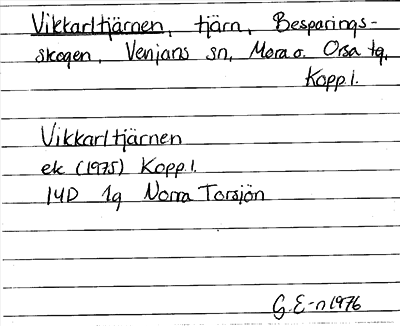 Vikkarltjärnen, tjärn, Besparings-
skogen, Venjans sn, Mora o. Orsa tg,
Kopp.l.
Vikkarltjärnen
ek (1975) Kopp.l.
14D 1g Norra Torsjön
G.E-n 1976